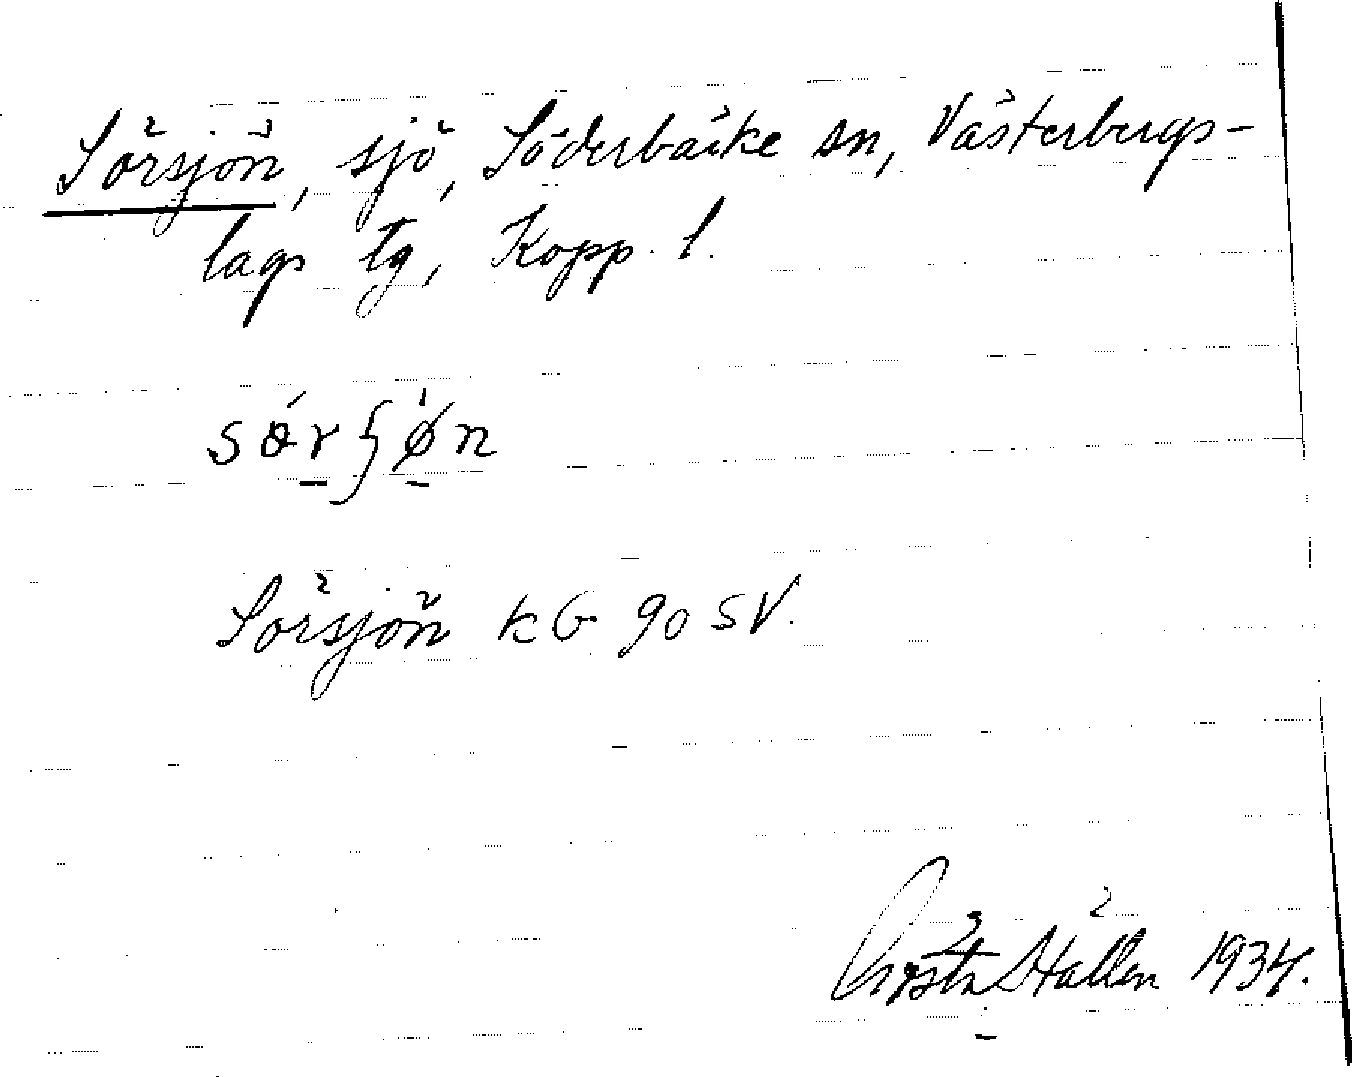 Sörsjön, sjö, Söderbärke sn, Västerbergs-
lags tg, Kopp. l.
Sörsjön kG 90 SV.
Gösta Hallén 1934.